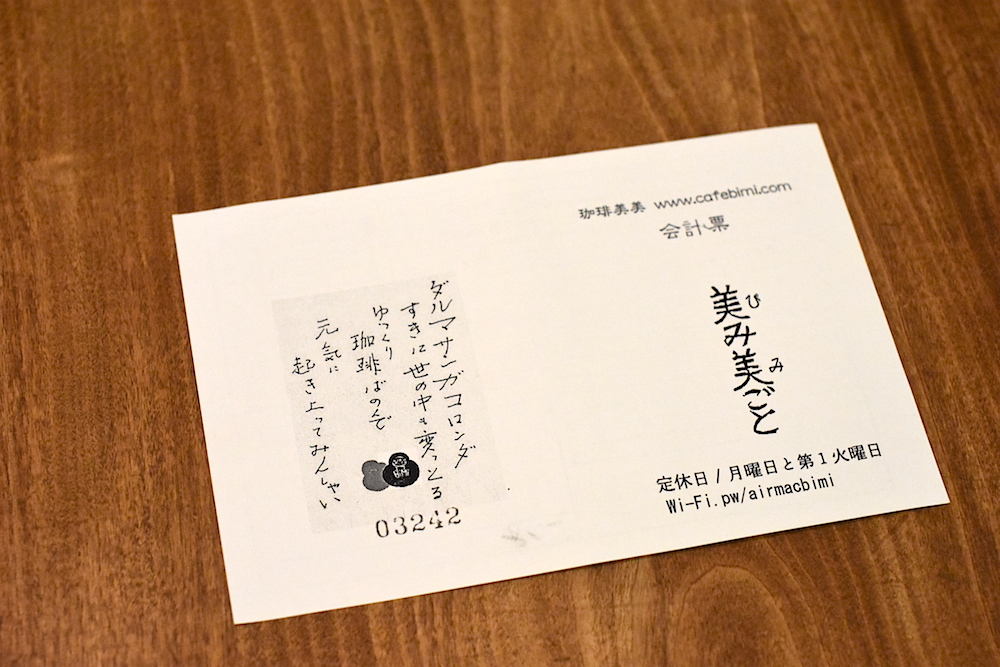 珈琲美美 www.cafebimi.com
会計票
美み美ごと
び
み
定休日/月曜日と第1火曜日
Wi-Fi.pw/airmacbimi
ダルマサンガコロンダ
すきに世の中も変っとる
ゆっくり
珈琲ばのんで
元気に
起き上ってみんしゃい
03242